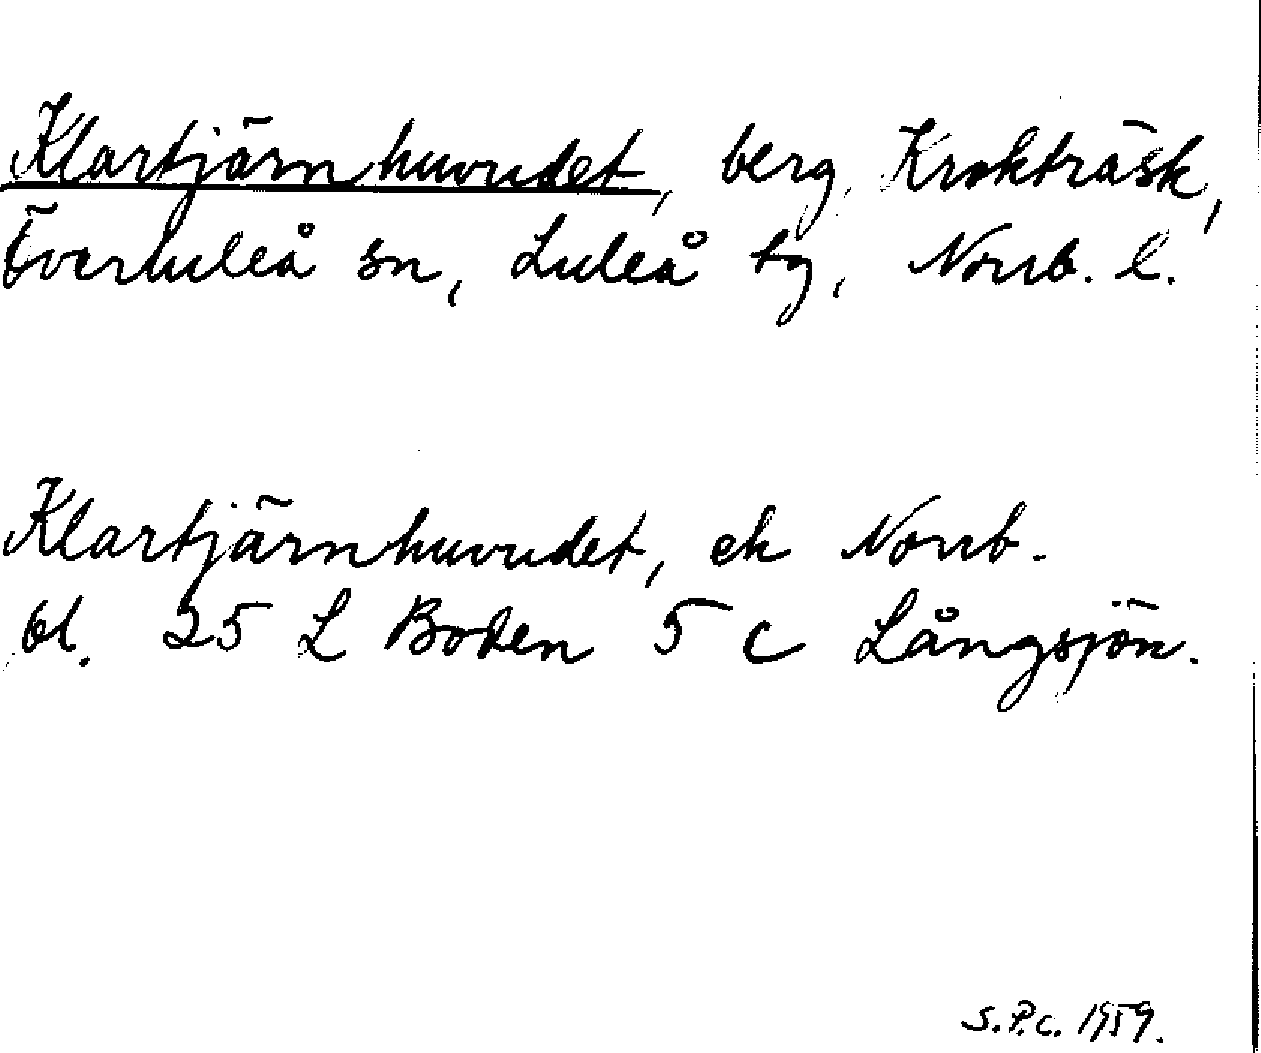 Klartjärnhuvudet, berg, Krokträsk,
Överluleå sn, Luleå tg, Norrb. l.
Klartjärnhuvudet, ek Norrb.
bl. 25 L Boden 5 c Långsjön.
S.P.C. 1959.